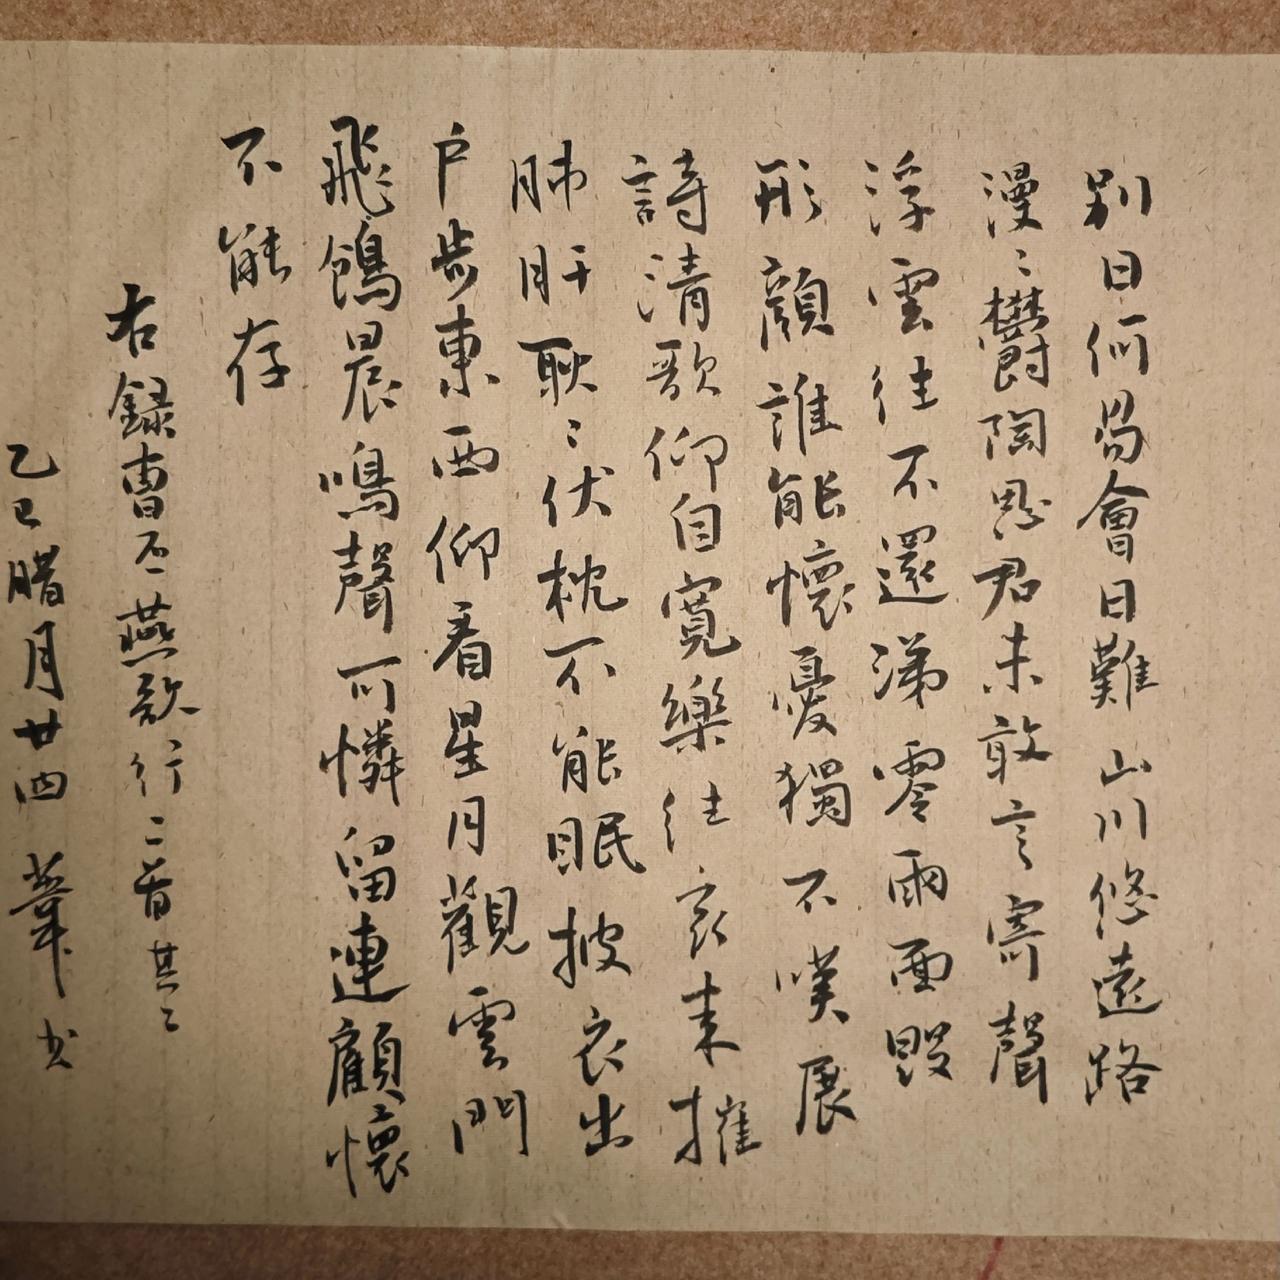 別日何易會日難山川悠遠路
漫〻欝陶思君未敢言寄聲
浮雲往不還涕零雨面毀
形顏誰能懷憂獨不嘆展
詩清歌仰自寬樂往哀来摧
肺肝耿〻伏枕不能眠披衣出
戶步東西仰看星月觀雲門
飛鴿晨鳴聲可憐留連顧懷
不能存
右録曹丕燕歌行二首其二
乙巳腊月廿四 葦书